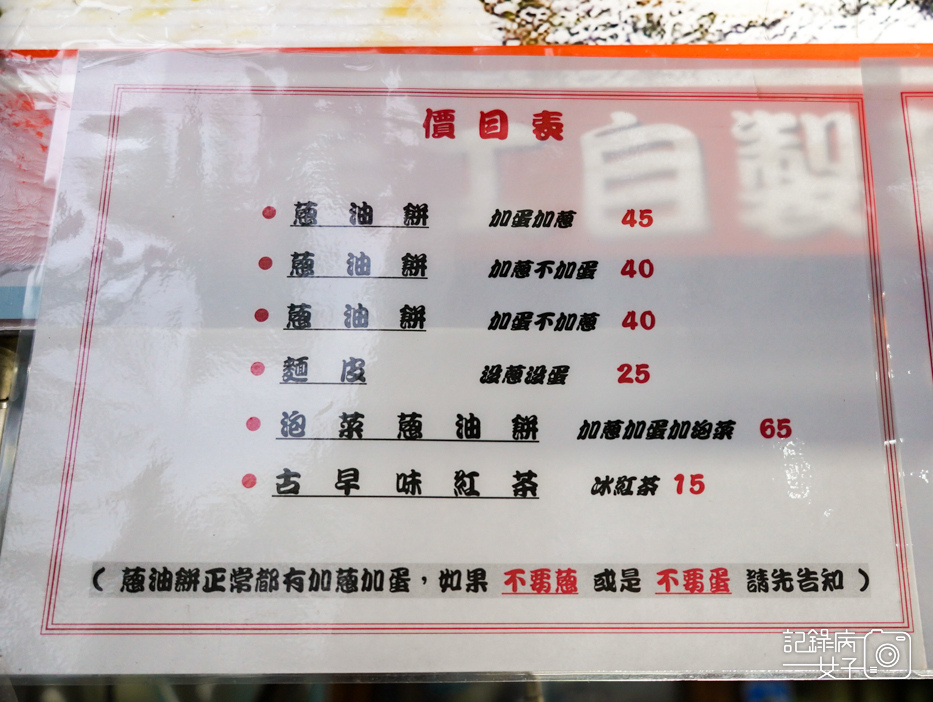 價目表
自製
蔥油餅 加蛋加蔥 45
蔥油餅 加蔥不加蛋 40
蔥油餅 加蛋不加蔥 40
麵皮 沒蔥沒蛋 25
泡菜蔥油餅 加蔥加蛋加泡菜 65
古早味紅茶 冰紅茶 15
(蔥油餅正常都有加蔥加蛋，如果 不要蔥 或是 不要蛋 請先告知)
記錄病
女子